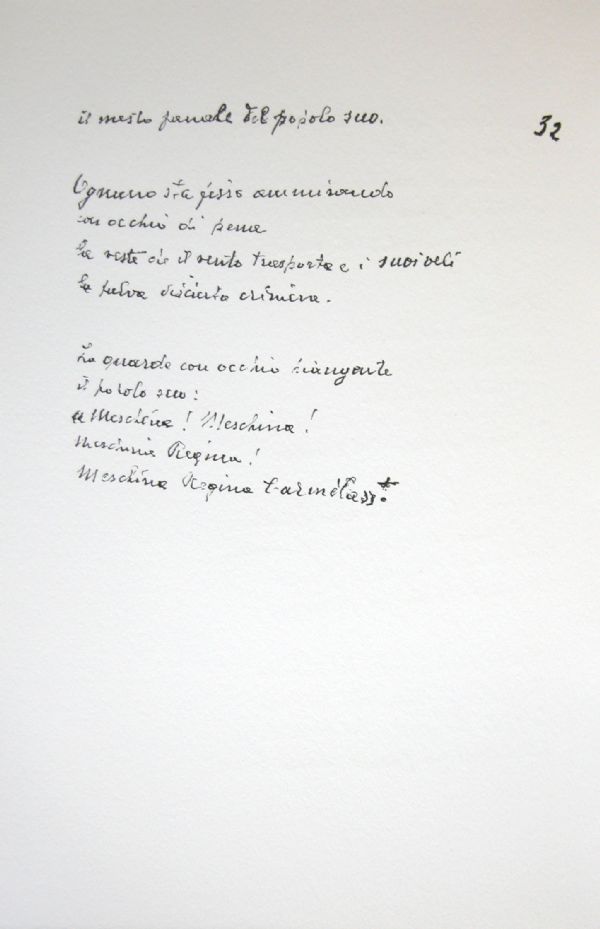 il mesto fanale del popolo suo.
32
Ognuno sta fisso ammirando
con occhio di pena
la veste che il vento trasporta e i suoi veli
la fulva criniera.
La guarda con occhio piangente
il popolo suo:
« Meschina! Meschina!
Meschina Regina!
Meschina Regina Carmelà